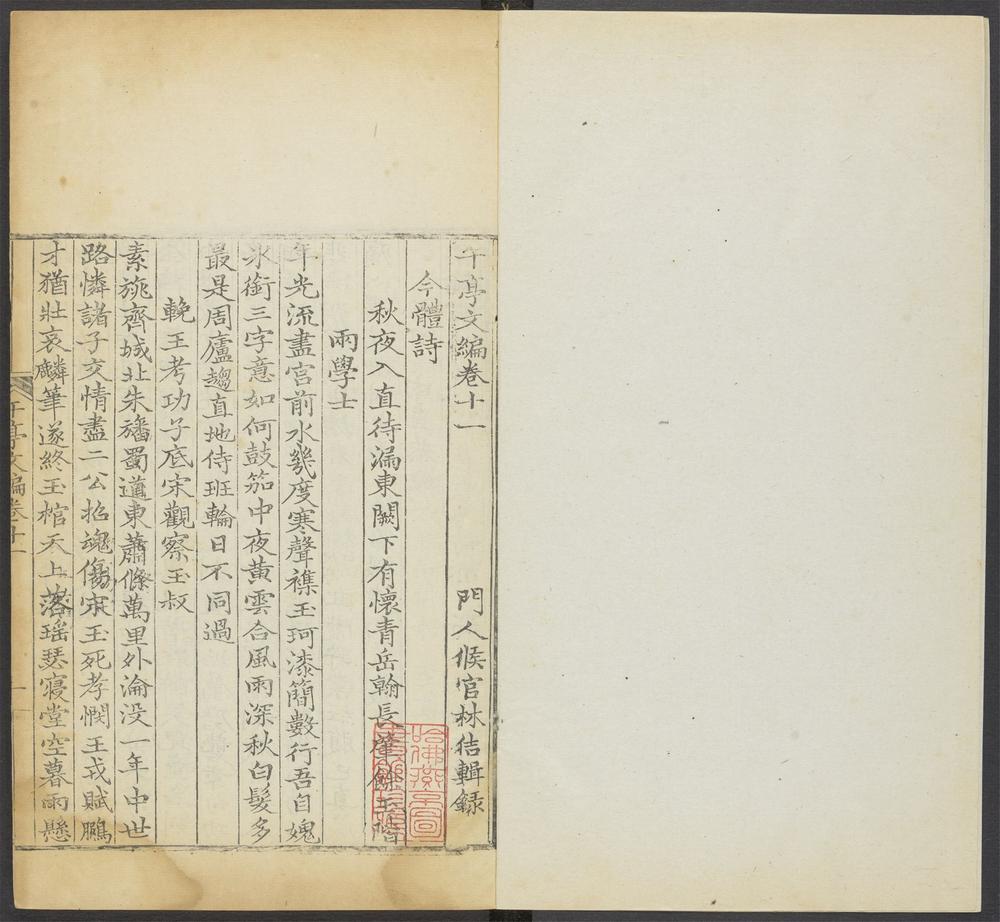 午亭文編卷十一
門人候官林佶輯錄
今體詩
秋夜入直待漏東闕下有懷青岳翰長肇餘玉階
兩學士
年光流盡宮前水幾度寒聲襍玉珂漆簡數行吾自媿
氷銜三字意如何鼓笳中夜黃雲合風雨深秋白髮多
最是周廬趨直地侍班輪日不同過
輓王考功子底宋觀察玉叔
素旐齊城北朱旛蜀道東蕭條萬里外淪沒一年中世
路憐諸子交情盡二公招魂傷宋玉死孝憫王戎賦鵩
才猶壯哀麟筆遂終玉棺天上落瑶瑟寢堂空暮雨懸
午亭文編卷十一
一
哈佛燕京